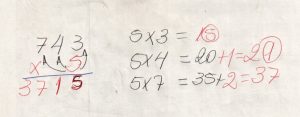 743
x 5
3715
5x3 = 15
5x4 = 20+1=21
5x7 = 35+2=37